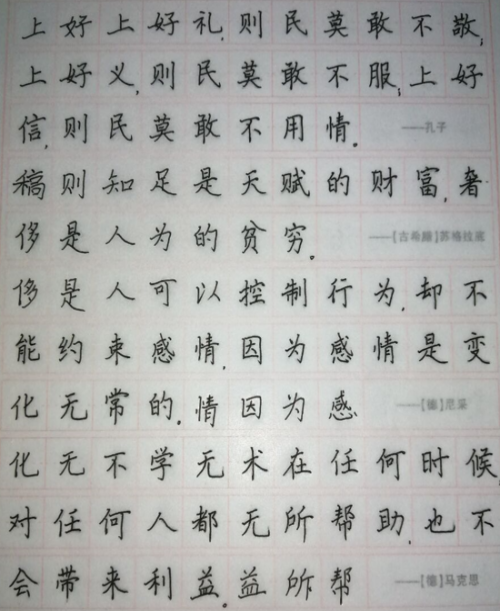 上好上好礼,则民莫敢不敬;
上好义,则民莫敢不服;上好
信,则民莫敢不用情。——孔子
稿则知足是天赋的财富,奢
侈是人为的贫穷。——【古希腊】苏格拉底
侈是人可以控制行为,却不
能约束感情,因为感情是变
化无常的。情因为感——【德】尼采
化无不学无术在任何时候,
对任何人都无所帮助,也不
会带来利益。益所帮——【德】马克思